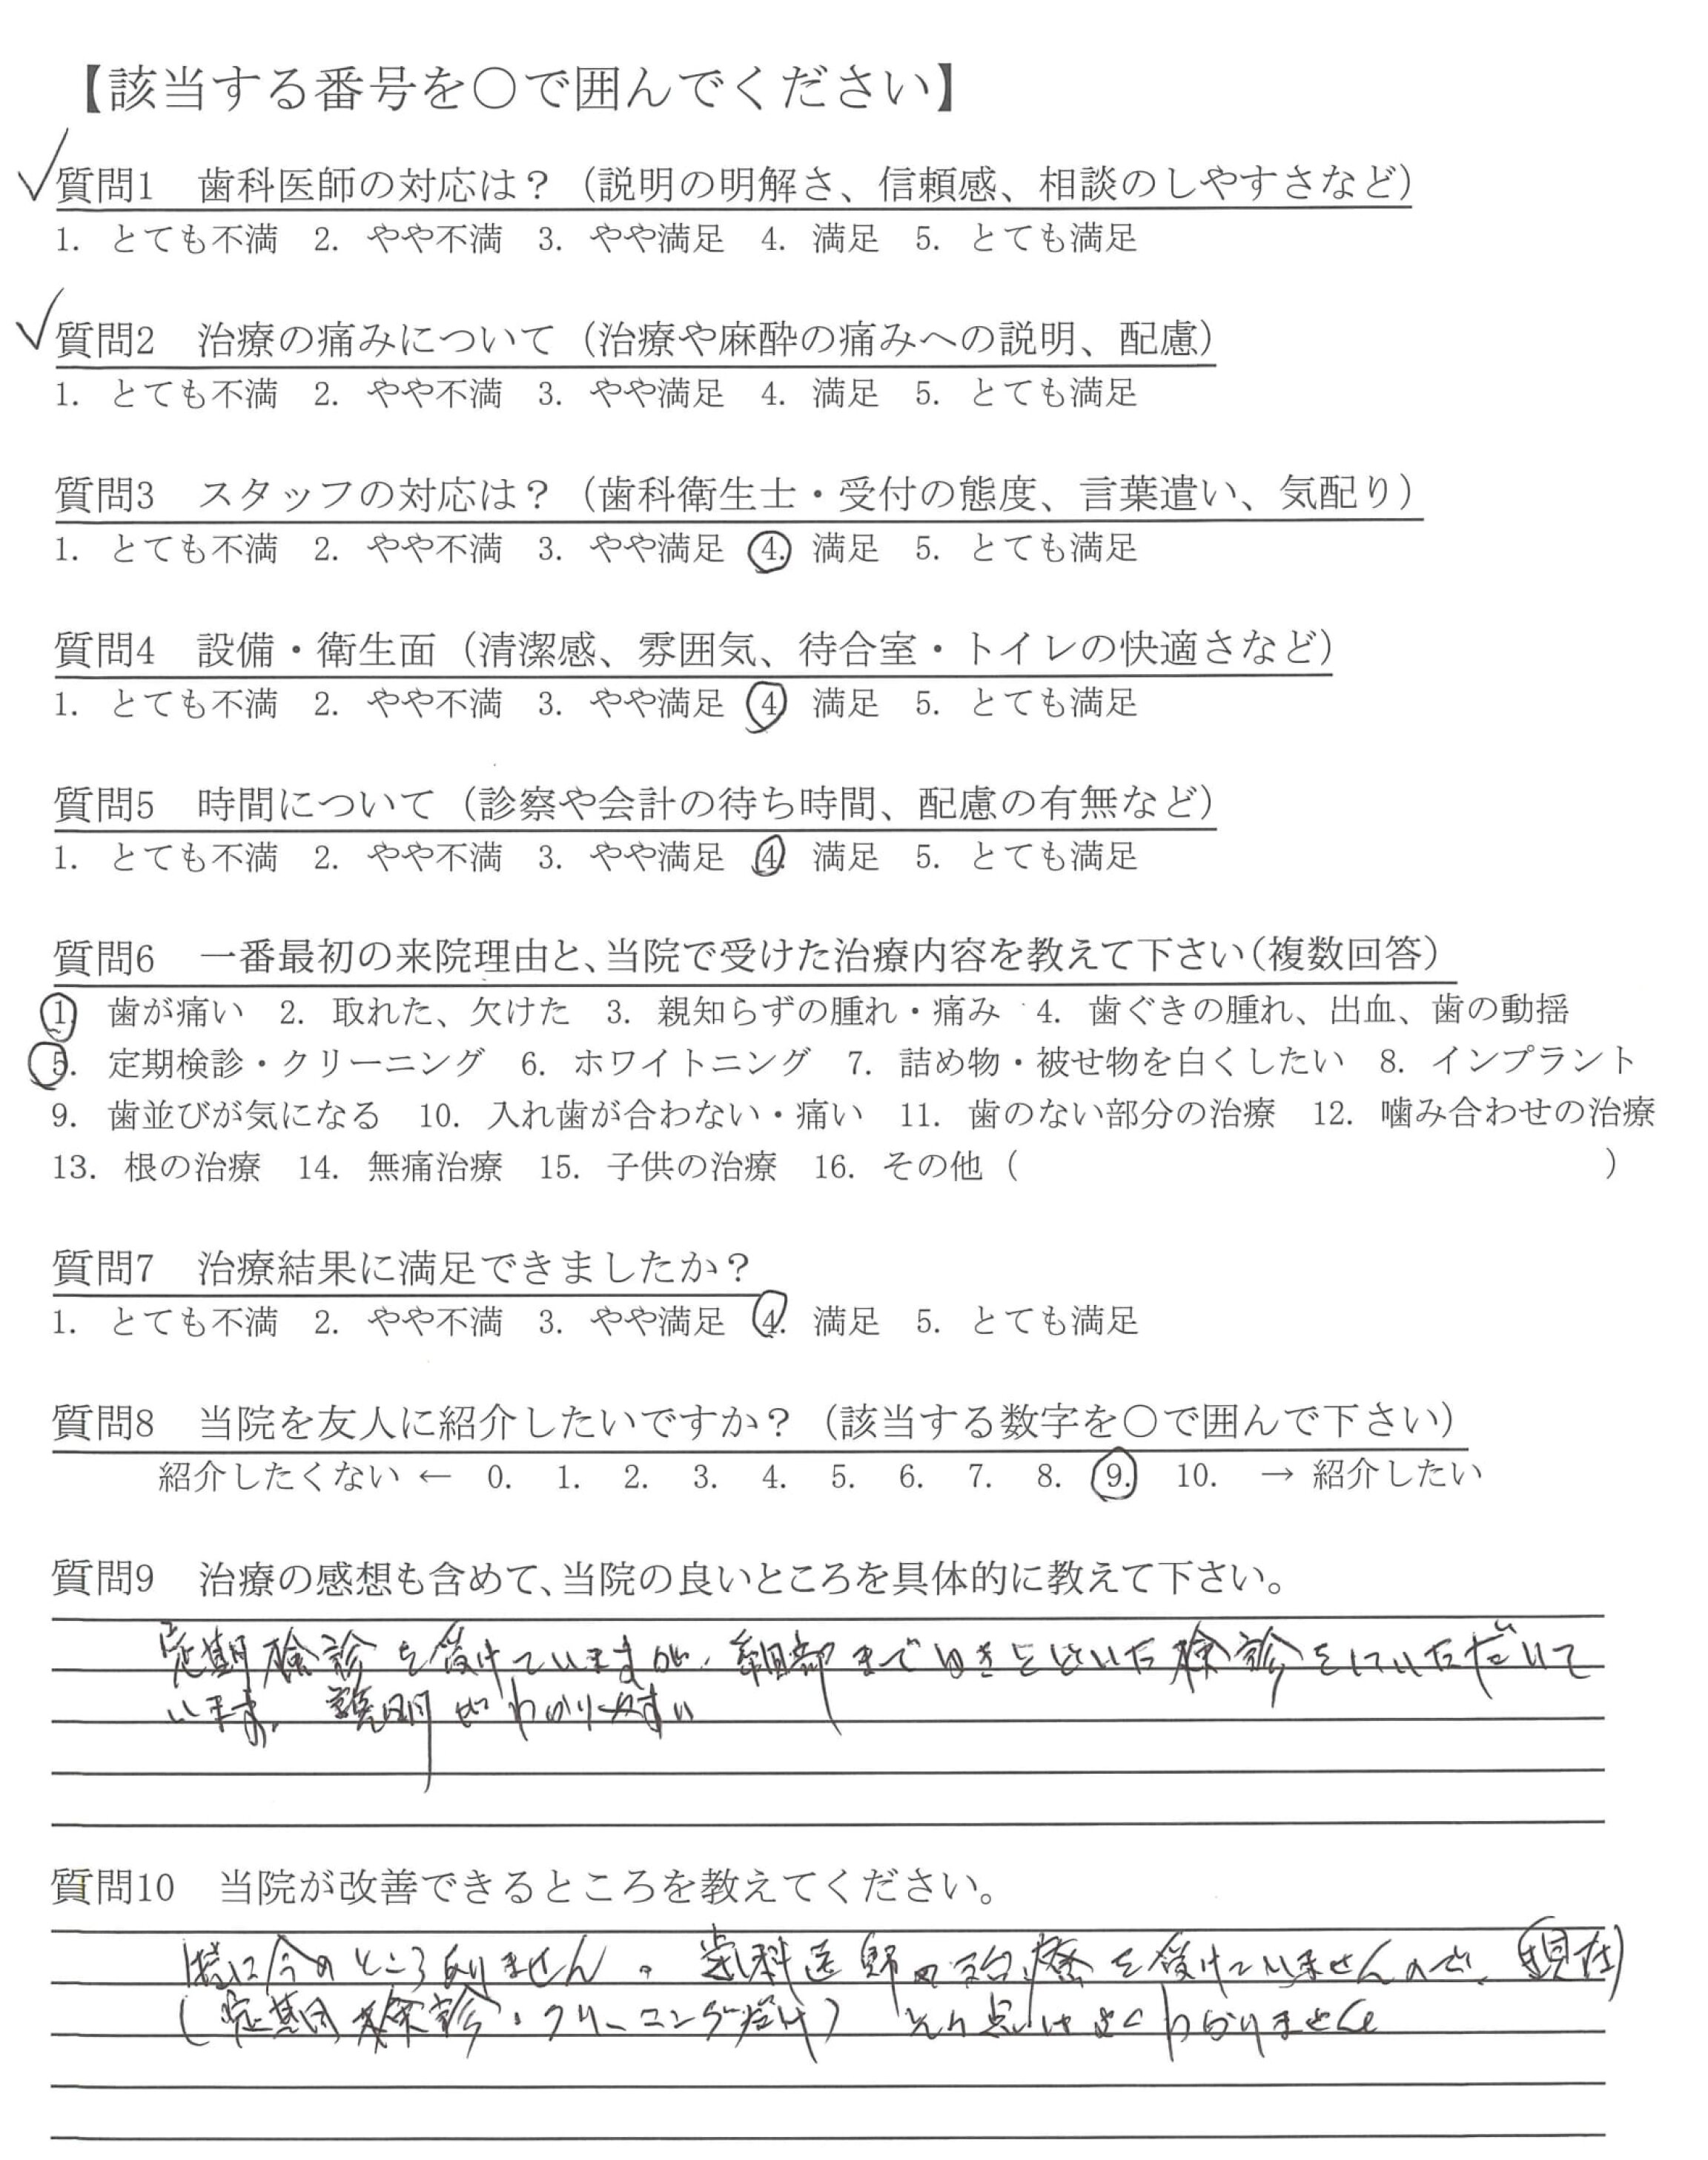 【該当する番号を〇で囲んでください】
質問1 歯科医師の対応は？（説明の明解さ、信頼感、相談のしやすさなど）
1. とても不満 2. やや不満 3. やや満足 4. 満足 5. とても満足
質問2 治療の痛みについて（治療や麻酔の痛みへの説明、配慮）
1. とても不満 2. やや不満 3. やや満足 4. 満足 5. とても満足
質問3 スタッフの対応は？（歯科衛生士・受付の態度、言葉遣い、気配り）
1. とても不満 2. やや不満 3. やや満足 4. 満足 5. とても満足
質問4 設備・衛生面（清潔感、雰囲気、待合室・トイレの快適さなど）
1. とても不満 2. やや不満 3. やや満足 4. 満足 5. とても満足
質問5 時間について（診察や会計の待ち時間、配慮の有無など）
1. とても不満 2. やや不満 3. やや満足 4. 満足 5. とても満足
質問6 一番最初の来院理由と、当院で受けた治療内容を教えて下さい（複数回答）
1. 歯が痛い 2. 取れた、欠けた 3. 親知らずの腫れ・痛み 4. 歯ぐきの腫れ、出血、歯の動揺
5. 定期検診・クリーニング 6. ホワイトニング 7. 詰め物・被せ物を白くしたい 8. インプラント
9. 歯並びが気になる 10. 入れ歯が合わない・痛い 11. 歯のない部分の治療 12. 噛み合わせの治療
13. 根の治療 14. 無痛治療 15. 子供の治療 16. その他（ ）
質問7 治療結果に満足できましたか？
1. とても不満 2. やや不満 3. やや満足 4. 満足 5. とても満足
質問8 当院を友人に紹介したいですか？（該当する数字を〇で囲んで下さい）
紹介したくない ← 0. 1. 2. 3. 4. 5. 6. 7. 8. 9. 10. → 紹介したい
質問9 治療の感想も含めて、当院の良いところを具体的に教えて下さい。
定期検診を受けていますが、細部まで ゆきとどいた検診をしていただいて
います。説明がわかりやすい
質問10 当院が改善できるところを教えてください。
特に今のところありません。歯科医師の治療を受けていませんので、現在
（定期検診・クリーニングだけ） その点はよくわかりません